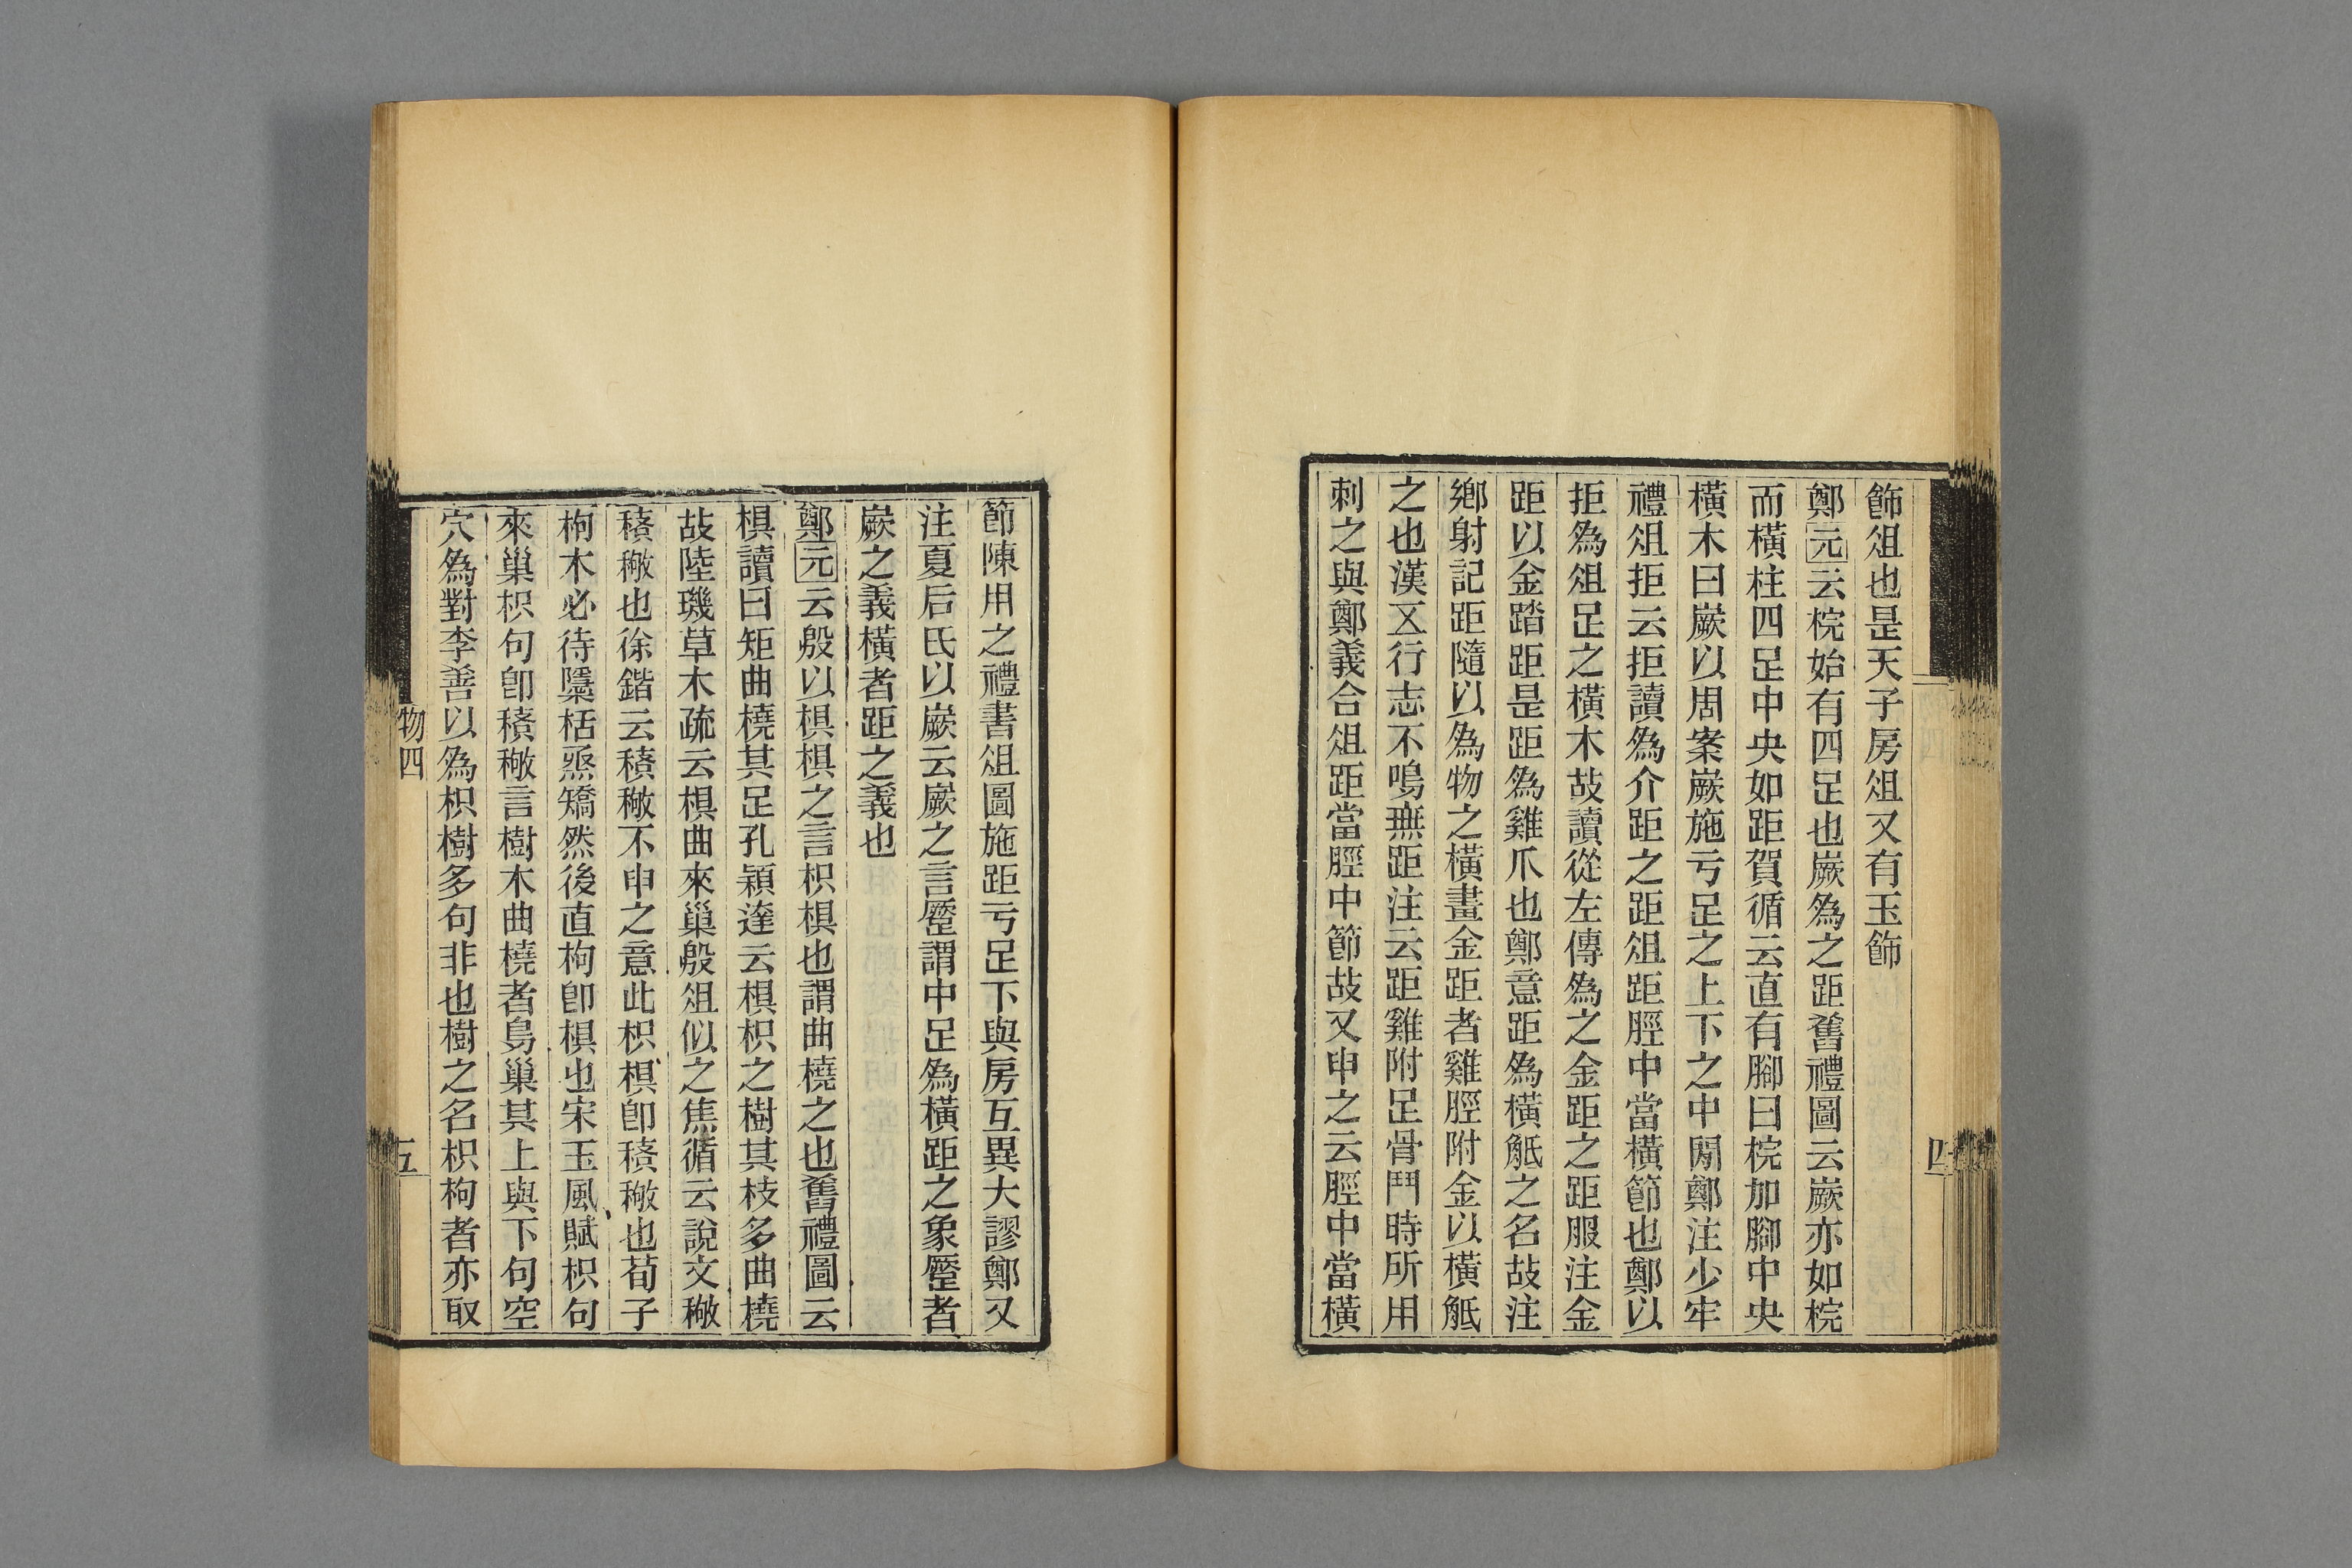 飾俎也是天子房俎又有玉飾
鄭元云梡始有四足也嶡爲之距舊禮圖云嶡亦如梡
而橫柱四足中央如距賀循云直有腳曰梡加腳中央
橫木曰嶡以周案嶡施亏足之上下之中閒鄭注少牢
禮俎拒云拒讀爲介距之距俎距脛中當橫節也鄭以
拒爲俎足之橫木故讀從左傳爲之金距之距服注金
距以金踏距是距爲雞爪也鄭意距爲橫觗之名故注
鄉射記距隨以爲物之橫畫金距者雞脛附金以橫觗
之也漢五行志不鳴無距注云距雞附足骨鬥時所用
刺之與鄭義合俎距當脛中節故又申之云脛中當橫
節陳用之禮書俎圖施距亏足下與房互異大謬鄭又
注夏后氏以嶡云嶡之言蹷謂中足爲橫距之象蹷者
嶡之義橫者距之義也
鄭元云殷以椇椇之言枳椇也謂曲橈之也舊禮圖云
椇讀曰矩曲橈其足孔穎達云椇枳之樹其枝多曲橈
故陸璣草木疏云椇曲來巢殷俎似之焦循云說文𥡴
𥠻𥡴也徐鍇云𥠻𥡴不申之意此枳椇卽𥠻𥡴也荀子
枸木必待檃栝烝矯然後直枸卽椇也宋玉風賦枳句
來巢枳句卽𥠻𥡴言樹木曲橈者鳥巢其上與下句空
穴爲對李善以爲枳樹多句非也樹之名枳枸者亦取
物四
五